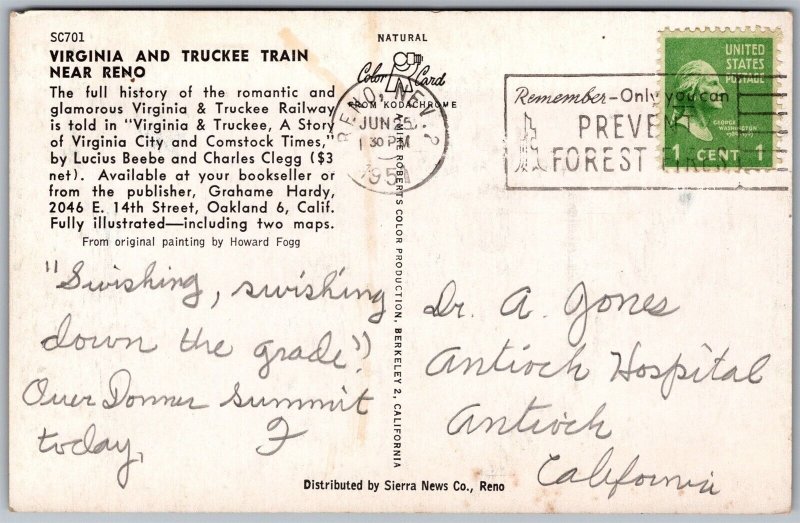 SC701
VIRGINIA AND TRUCKEE TRAIN
NEAR RENO
The full history of the romantic and
glamorous Virginia & Truckee Railway
is told in "Virginia & Truckee, A Story
of Virginia City and Comstock Times,"
by Lucius Beebe and Charles Clegg ($3
net). Available at your bookseller or
from the publisher, Grahame Hardy,
2046 E. 14th Street, Oakland 6, Calif.
Fully illustrated—including two maps.
From original painting by Howard Fogg
"Swishing, swishing
down the grade")
Over Donner Summit
today,
F
NATURAL
Color Card
FROM KODACHROME
A MIKE ROBERTS COLOR PRODUCTION, BERKELEY 2, CALIFORNIA
RENO, NEV. 2
JUN 25
30 PM
Remember-Only you can
PREVENT
FOREST FIRES
UNITED
STATES
POSTAGE
GEORGE
WASHINGTON
1789-1797
1 CENT 1
Dr. A. Jones
Antioch Hospital
Antioch
California
Distributed by Sierra News Co., Reno